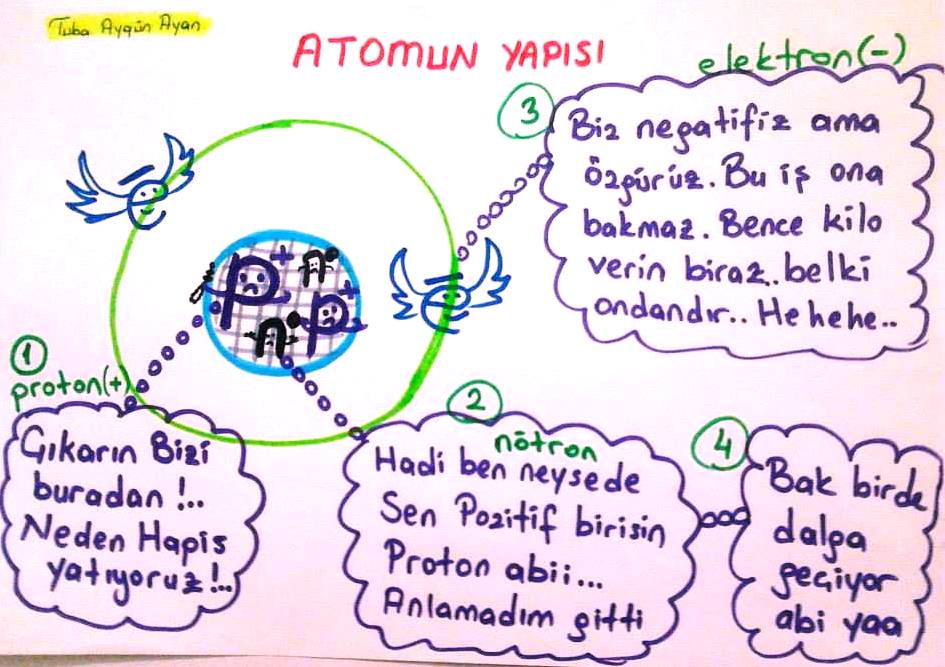 Tuba Aygün Ayan
ATOMUN YAPISI
elektron(-)
3
Biz negatifiz ama
özgürüz. Bu iş ona
bakmaz. Bence kilo
verin biraz.. belki
ondandır.. He he he..
P+
n•
n•
P+
1
proton(+)
Çıkarın Bizi
buradan !..
Neden Hapis
yatıyoruz !..
2
nötron
Hadi ben neysede
Sen Pozitif birisin
Proton abii...
Anlamadım gitti
4
Bak birde
dalga
geçiyor
abi yaa